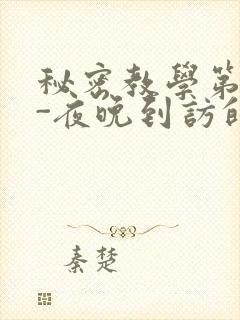 秘密教學第
-夜晚到訪的
秦楚